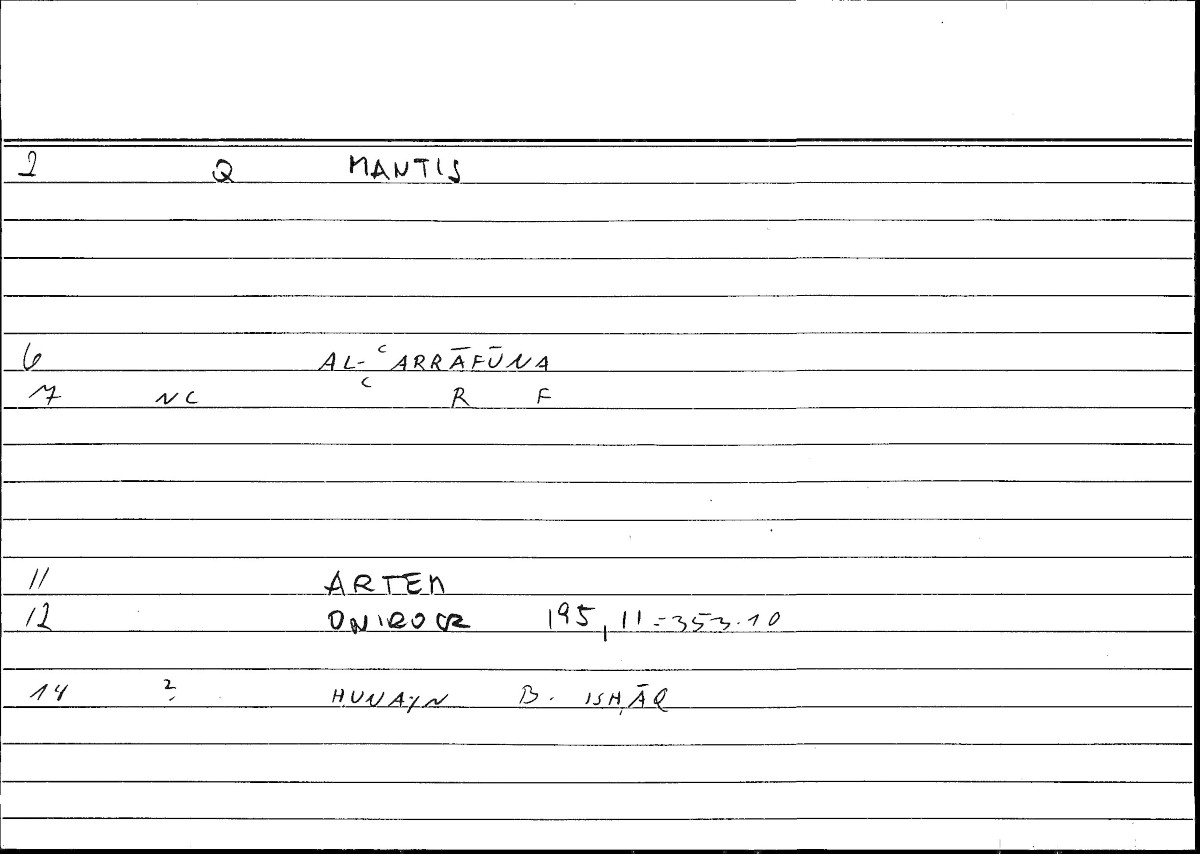 2 Q MANTIS
6 AL-ʿARRĀFŪNA
7 NC ʿ R F
11 ARTEM
12 ONIROCR 195,11=353.10
14 2 ḤUNAYN B. ISḤĀQ